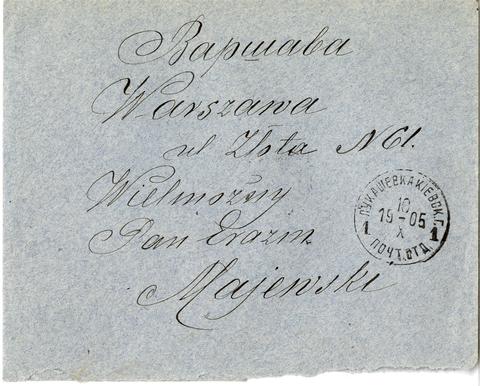 Варшава
Warszawa
ul Złota N 61.
Wielmożny
Pan Erazm
Majewski
ЛУКАШЕВКА КІЕВСК.Г.
10
19-05
X
1 1
ПОЧТ.ОТД.